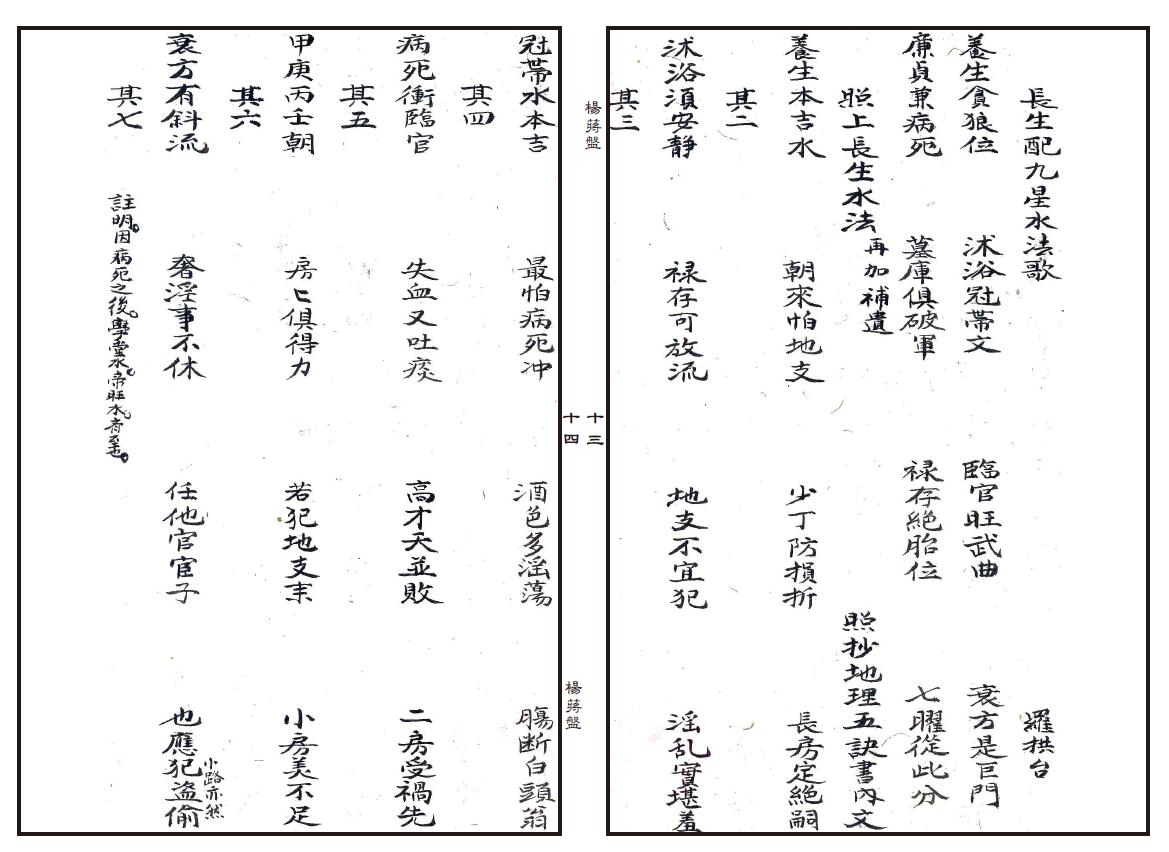 長生配九星水法歌 羅拱台
養生貪狼位 沭浴冠帶文 臨官旺武曲 衰方是巨門
廉貞兼病死 墓庫俱破軍 禄存絕胎位 七曜從此分
照上長生水法 再加補遺 照抄地理五訣書內文
養生本吉水 朝來怕地支 少丁防損折 長房定絶嗣
其二
沭浴須安静 禄存可放流 地支不宜犯 淫乱實堪羞
其三
楊蔣盤
十三
十四
楊蔣盤
冠帶水本吉 最怕病死冲 酒色多淫蕩 腸断白頭翁
其四
病死衝臨官 失血又吐痰 高才夭並敗 二房受禍先
其五
甲庚丙壬朝 房匕俱得力 若犯地支来 小房美不足
其六
衰方有斜流 奢淫事不休 任他官宦子 也應犯盜偷 小路亦然
其七
註明。因病死之後。學堂水。帝旺水齊至也。